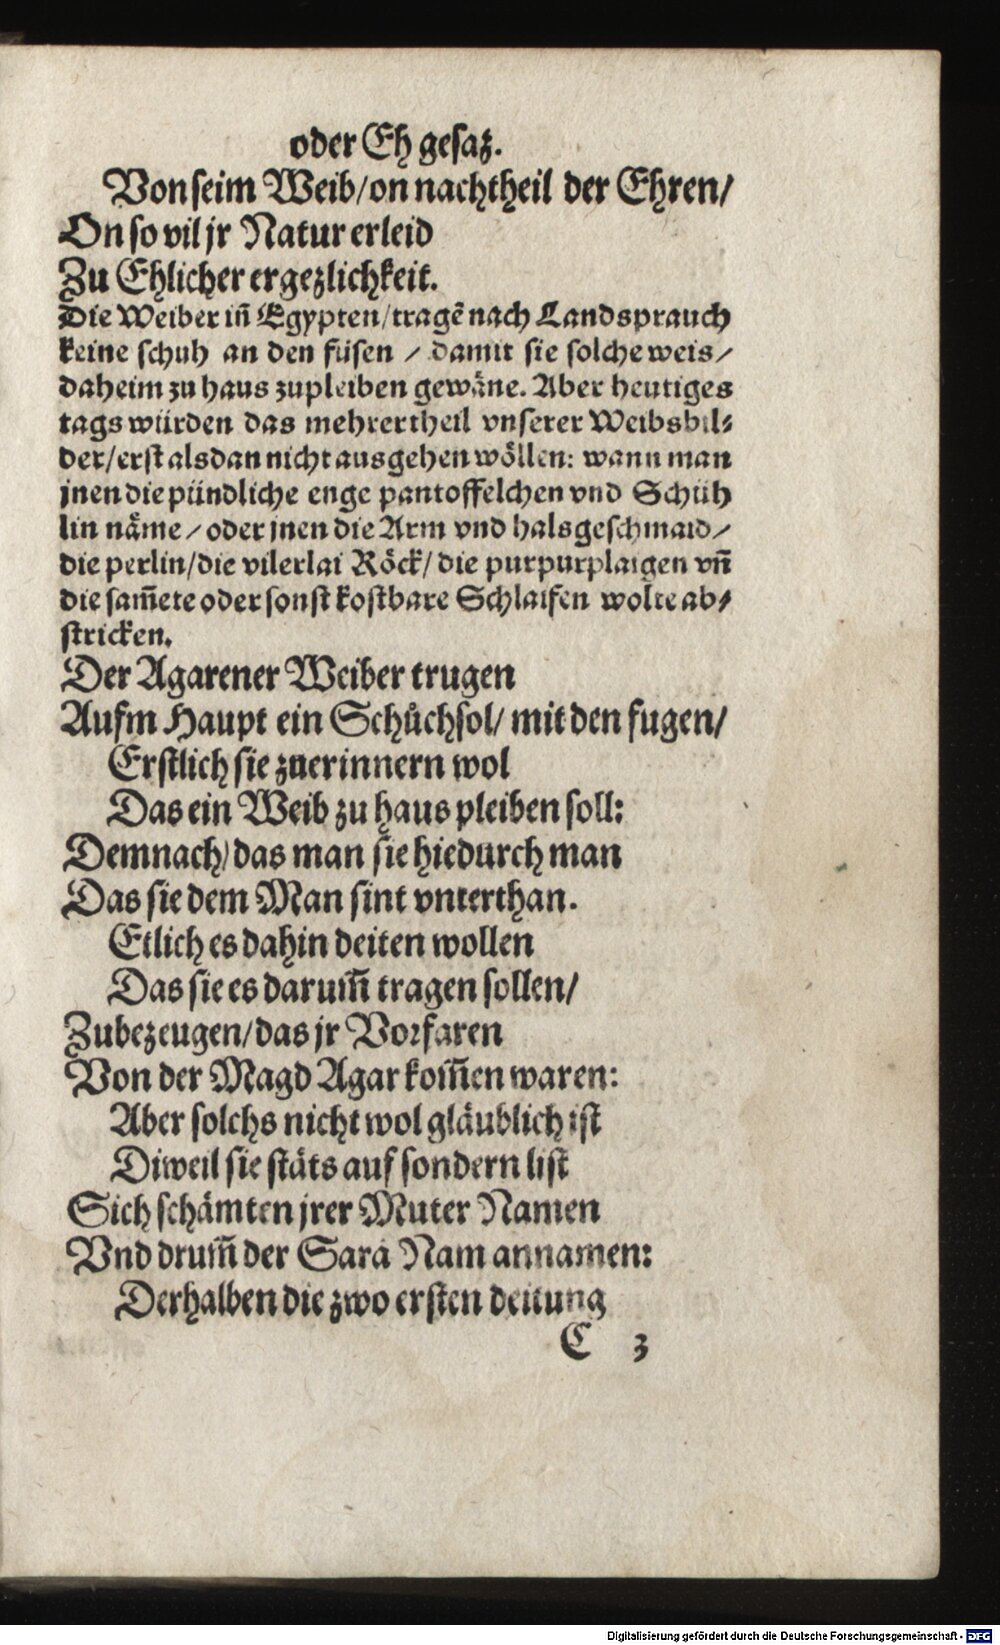 oder Eh gesaz.
Von seim Weib/ on nachtheil der Ehren/
On so vil jr Natur erleid
Zu Ehlicher ergezlichkeit.
Die Weiber iñ Egypten/ tragẽ nach Landsprauch
keine schuh an den füsen / damit sie solche weis/
daheim zu haus zupleiben gewäne. Aber heutiges
tags würden das mehrertheil vnserer Weibsbil⸗
der/ erst alsdan nicht ausgehen wöllen: wann man
jnen die pündliche enge pantoffelchen vnd Schüh
lin näme / oder jnen die Arm vnd halsgeschmaid/
die perlin/ die vilerlai Röck/ die purpurplaigen vñ
die sam̃ete oder sonst kostbare Schlaifen wolte ab⸗
stricken.
Der Agarener Weiber trugen
Aufm Haupt ein Schůchsol/ mit den fugen/
Erstlich sie zuerinnern wol
Das ein Weib zu haus pleiben soll:
Demnach) das man sie hiedurch man
Das sie dem Man sint vnterthan.
Etlich es dahin deiten wollen
Das sie es darum̃ tragen sollen/
Zubezeugen/ das jr Vorfaren
Von der Magd Agar kom̃en waren:
Aber solchs nicht wol gläublich ist
Diweil sie stäts auf sondern list
Sich schämten jrer Muter Namen
Vnd drum̃ der Sara Nam annamen:
Derhalben die zwo ersten deitung
C 3
Digitalisierung gefördert durch die Deutsche Forschungsgemeinschaft - DFG